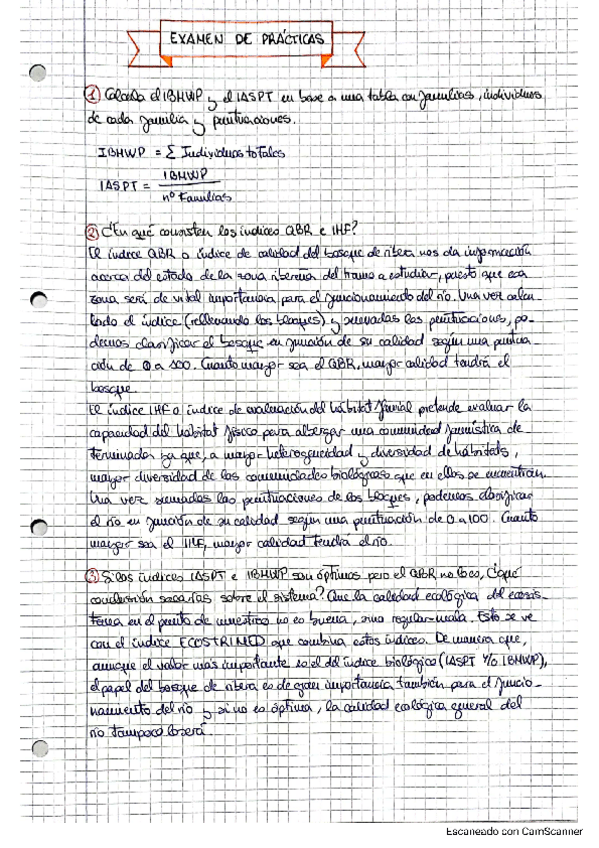 EXAMEN DE PRÁCTICAS
① Calcula el IBMWP y el IASPT en base a una tabla con familias, individuos
de cada familia y puntuaciones.
IBMWP = Σ Individuos totales
IASPT = IBMWP / nº Familias
② ¿En qué consisten los índices QBR e IHF?
El índice QBR o índice de calidad del bosque de ribera nos da información
acerca del estado de la zona ribereña del tramo a estudiar, puesto que esa
zona será de vital importancia para el funcionamiento del río. Una vez calcu-
lado el índice (rellenando los bloques) y sumadas las puntuaciones, po-
demos clasificar el bosque en función de su calidad según una puntua-
ción de 0 a 100. Cuanto mayor sea el QBR, mayor calidad tendrá el
bosque.
El índice IHF o índice de evaluación del hábitat fluvial pretende evaluar la
capacidad del hábitat físico para albergar una comunidad faunística de
terminada ya que, a mayor heterogeneidad y diversidad de hábitats,
mayor diversidad de las comunidades biológicas que en ellos se encuentran.
Una vez sumadas las puntuaciones de los bloques, podemos clasificar
el río en función de su calidad según una puntuación de 0 a 100. Cuanto
mayor sea el IHF, mayor calidad tendrá el río.
③ Si los índices IASPT e IBMWP son óptimos pero el QBR no lo es, ¿qué
conclusión sacarías sobre el sistema? Que la calidad ecológica del ecosis-
tema en el punto de muestreo no es buena, sino regular-mala. Esto se ve
con el índice ECOSTRIMED que combina estos índices. De manera que,
aunque el valor más importante es el del índice biológico (IASPT y/o IBMWP),
el papel del bosque de ribera es de gran importancia también para el funcio-
namiento del río y si no es óptima, la calidad ecológica general del
río tampoco lo será.
Escaneado con CamScanner